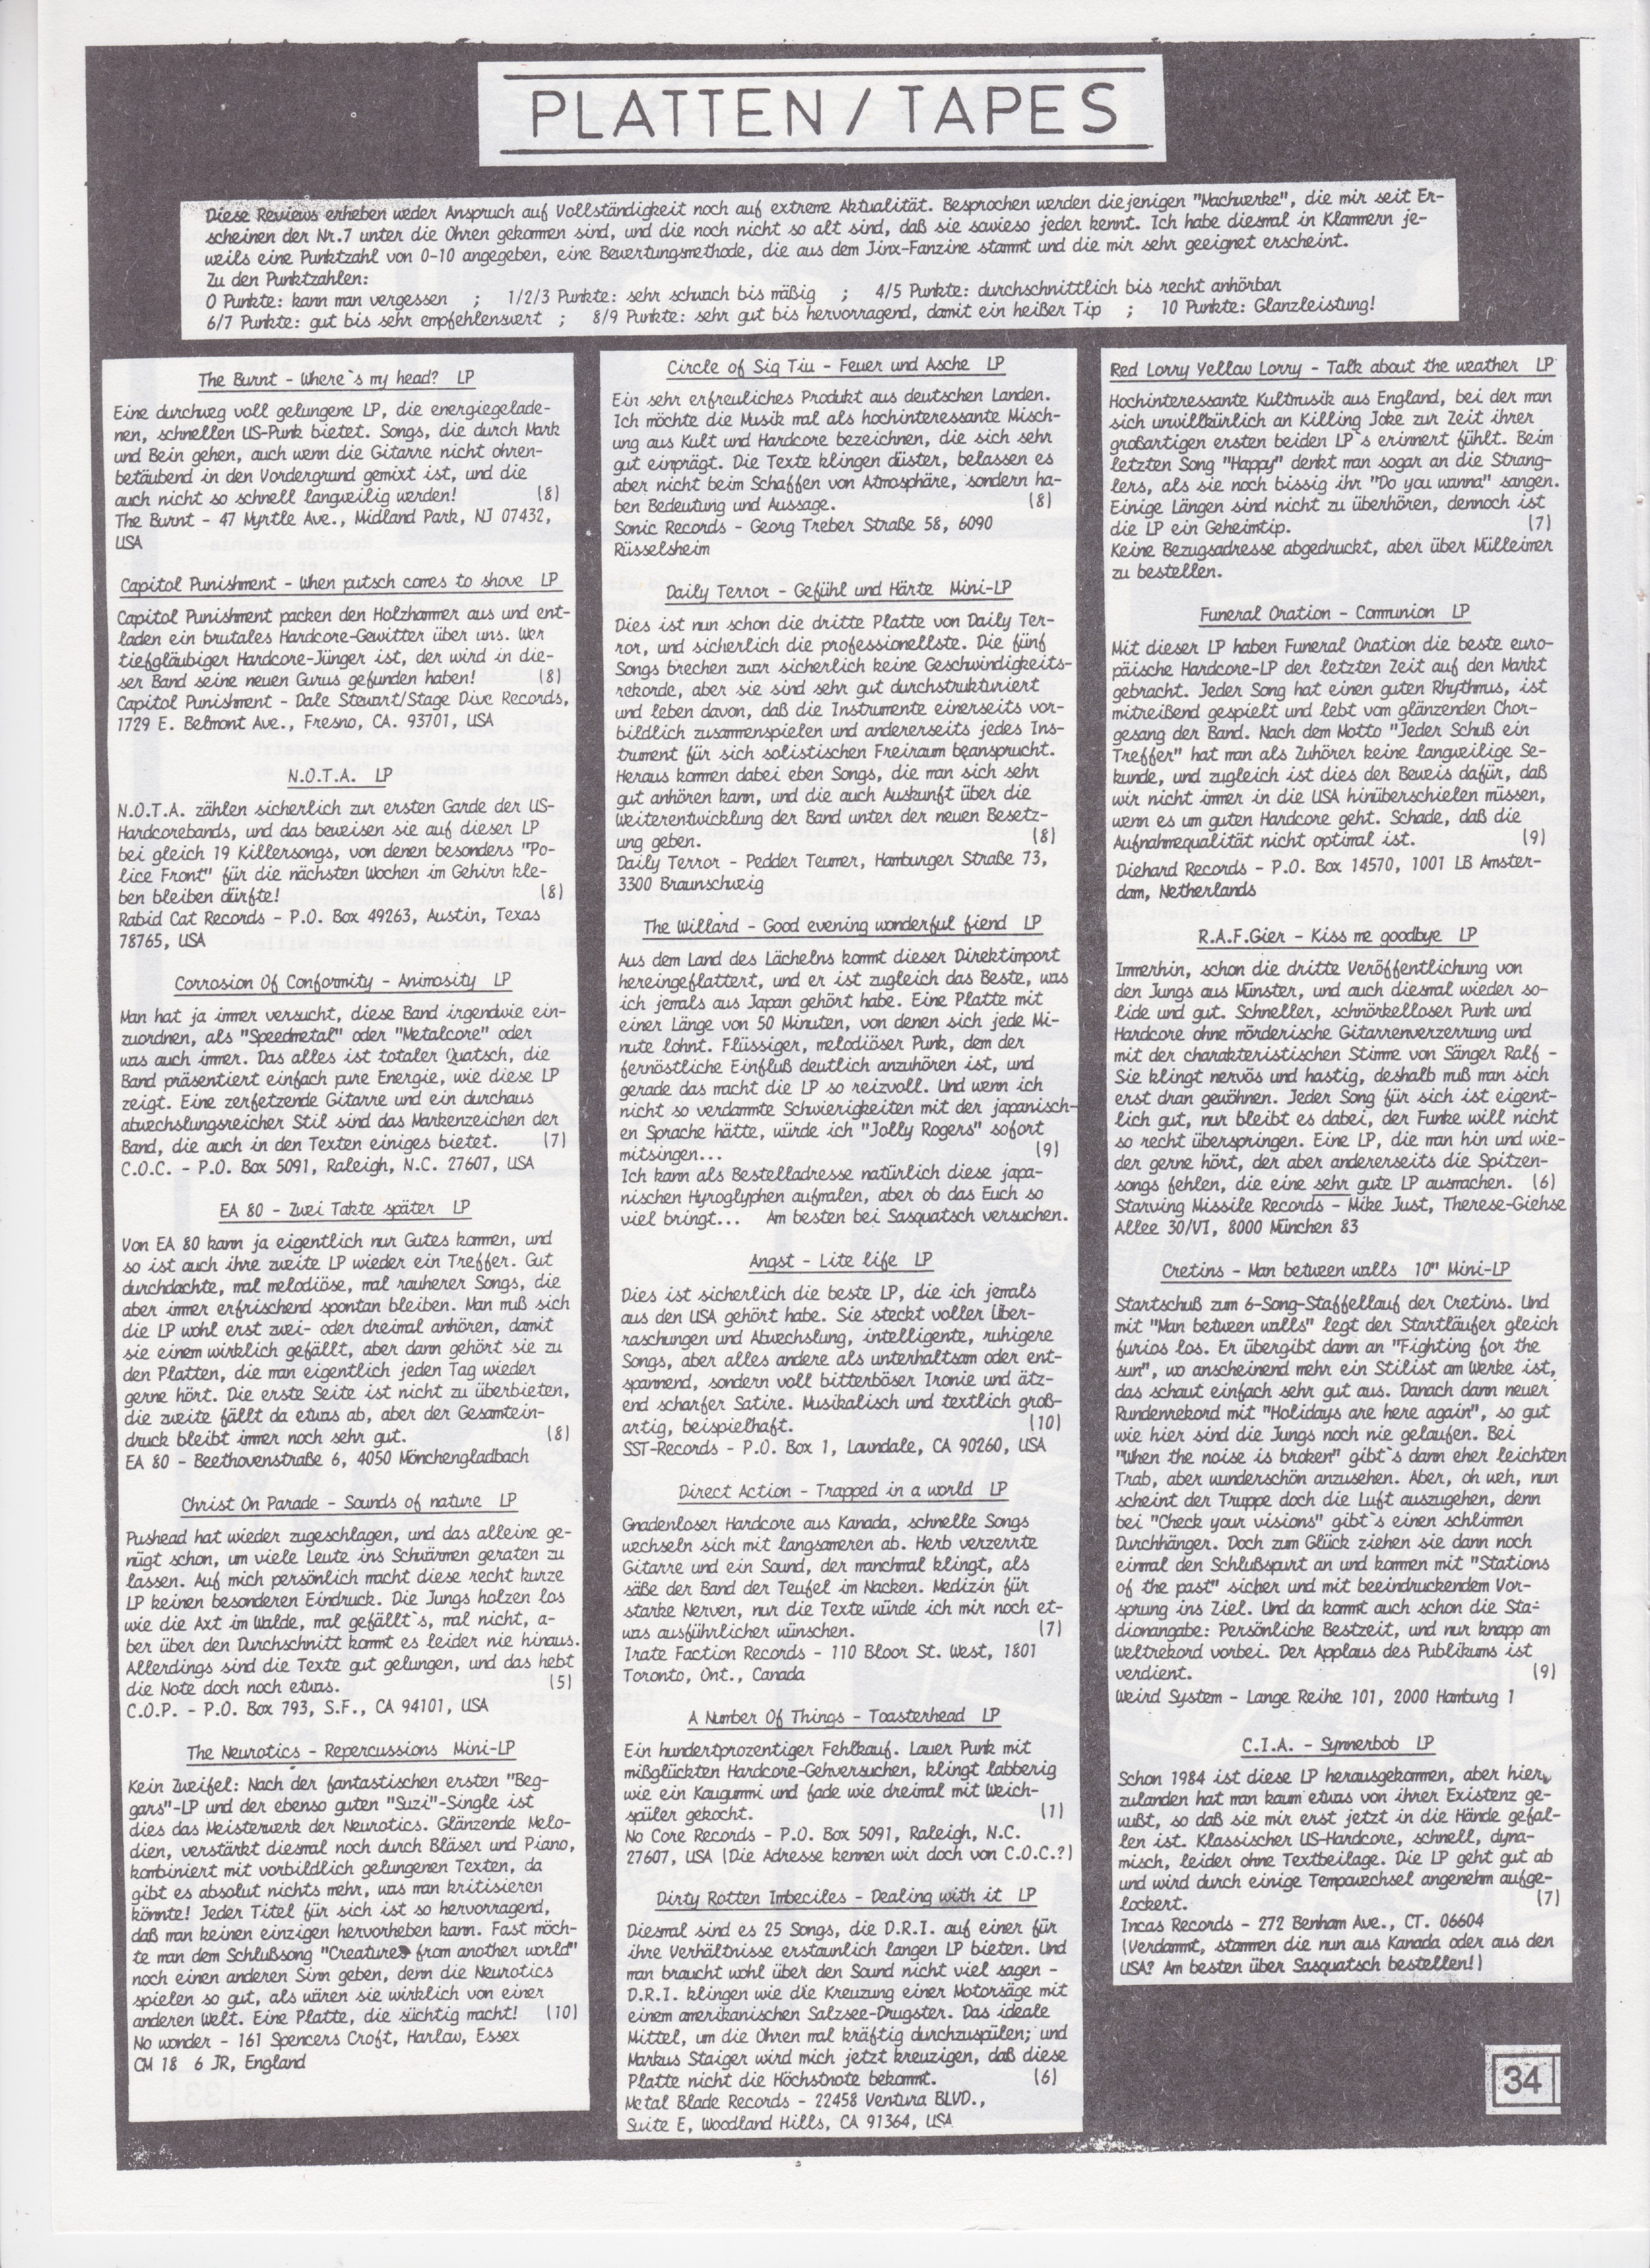 PLATTEN/TAPES
Diese Reviews erheben weder Anspruch auf Vollständigkeit noch auf extreme Aktualität. Besprochen werden diejenigen "Machwerke", die mir seit Er-
scheinen der Nr.7 unter die Ohren gekommen sind, und die noch nicht so alt sind, daß sie sowieso jeder kennt. Ich habe diesmal in Klammern je-
weils eine Punktzahl von 0-10 angegeben, eine Bewertungsmethode, die aus dem Jinx-Fanzine stammt und die mir sehr geeignet erscheint.
Zu den Punktzahlen:
0 Punkte: kann man vergessen ; 1/2/3 Punkte: sehr schwach bis mäßig ; 4/5 Punkte: durchschnittlich bis recht anhörbar
6/7 Punkte: gut bis sehr empfehlenswert ; 8/9 Punkte: sehr gut bis hervorragend, damit ein heißer Tip ; 10 Punkte: Glanzleistung!
The Burnt - Where`s my head? LP
Eine durchweg voll gelungene LP, die energiegelade-
nen, schnellen US-Punk bietet. Songs, die durch Mark
und Bein gehen, auch wenn die Gitarre nicht ohren-
betäubend in den Vordergrund gemixt ist, und die
auch nicht so schnell langweilig werden! (8)
The Burnt - 47 Myrtle Ave., Midland Park, NJ 07432,
USA
Capitol Punishment - When putsch comes to shove LP
Capitol Punishment packen den Holzhammer aus und ent-
laden ein brutales Hardcore-Gewitter über uns. Wer
tiefgläubiger Hardcore-Jünger ist, der wird in die-
ser Band seine neuen Gurus gefunden haben! (8)
Capitol Punishment - Dale Stewart/Stage Dive Records,
1729 E. Belmont Ave., Fresno, CA. 93701, USA
N.O.T.A. LP
N.O.T.A. zählen sicherlich zur ersten Garde der US-
Hardcorebands, und das beweisen sie auf dieser LP
bei gleich 19 Killersongs, von denen besonders "Po-
lice Front" für die nächsten Wochen im Gehirn kle-
ben bleiben dürfte! (8)
Rabid Cat Records - P.O. Box 49263, Austin, Texas
78765, USA
Corrosion Of Conformity - Animosity LP
Man hat ja immer versucht, diese Band irgendwie ein-
zuordnen, als "Speedmetal" oder "Metalcore" oder
was auch immer. Das alles ist totaler Quatsch, die
Band präsentiert einfach pure Energie, wie diese LP
zeigt. Eine zerfetzende Gitarre und ein durchaus
abwechslungsreicher Stil sind das Markenzeichen der
Band, die auch in den Texten einiges bietet. (7)
C.O.C. - P.O. Box 5091, Raleigh, N.C. 27607, USA
EA 80 - Zwei Takte später LP
Von EA 80 kann ja eigentlich nur Gutes kommen, und
so ist auch ihre zweite LP wieder ein Treffer. Gut
durchdachte, mal melodiöse, mal rauherer Songs, die
aber immer erfrischend spontan bleiben. Man muß sich
die LP wohl erst zwei- oder dreimal anhören, damit
sie einem wirklich gefällt, aber dann gehört sie zu
den Platten, die man eigentlich jeden Tag wieder
gerne hört. Die erste Seite ist nicht zu überbieten,
die zweite fällt da etwas ab, aber der Gesamtein-
druck bleibt immer noch sehr gut. (8)
EA 80 - Beethovenstraße 6, 4050 Mönchengladbach
Christ On Parade - Sounds of nature LP
Pushead hat wieder zugeschlagen, und das alleine ge-
nügt schon, um viele Leute ins Schwärmen geraten zu
lassen. Auf mich persönlich macht diese recht kurze
LP keinen besonderen Eindruck. Die Jungs holzen los
wie die Axt im Walde, mal gefällt`s, mal nicht, a-
ber über den Durchschnitt kommt es leider nie hinaus.
Allerdings sind die Texte gut gelungen, und das hebt
die Note doch noch etwas. (5)
C.O.P. - P.O. Box 793, S.F., CA 94101, USA
The Neurotics - Repercussions Mini-LP
Kein Zweifel: Nach der fantastischen ersten "Beg-
gars"-LP und der ebenso guten "Suzi"-Single ist
dies das Meisterwerk der Neurotics. Glänzende Melo-
dien, verstärkt diesmal noch durch Bläser und Piano,
kombiniert mit vorbildlich gelungenen Texten, da
gibt es absolut nichts mehr, was man kritisieren
könnte! Jeder Titel für sich ist so hervorragend,
daß man keinen einzigen hervorheben kann. Fast möch-
te man dem Schlußsong "Creatures from another world"
noch einen anderen Sinn geben, denn die Neurotics
spielen so gut, als wären sie wirklich von einer
anderen Welt. Eine Platte, die süchtig macht! (10)
No wonder - 161 Spencers Croft, Harlow, Essex
CM 18 6 JR, England
Circle of Sig Tiu - Feuer und Asche LP
Ein sehr erfreuliches Produkt aus deutschen Landen.
Ich möchte die Musik mal als hochinteressante Misch-
ung aus Kult und Hardcore bezeichnen, die sich sehr
gut einprägt. Die Texte klingen düster, belassen es
aber nicht beim Schaffen von Atmosphäre, sondern ha-
ben Bedeutung und Aussage. (8)
Sonic Records - Georg Treber Straße 58, 6090
Rüsselsheim
Daily Terror - Gefühl und Härte Mini-LP
Dies ist nun schon die dritte Platte von Daily Ter-
ror, und sicherlich die professionellste. Die fünf
Songs brechen zwar sicherlich keine Geschwindigkeits-
rekorde, aber sie sind sehr gut durchstrukturiert
und leben davon, daß die Instrumente einerseits vor-
bildlich zusammenspielen und andererseits jedes Ins-
trument für sich solistischen Freiraum beansprucht.
Heraus kommen dabei eben Songs, die man sich sehr
gut anhören kann, und die auch Auskunft über die
Weiterentwicklung der Band unter der neuen Besetz-
ung geben. (8)
Daily Terror - Pedder Teumer, Hamburger Straße 73,
3300 Braunschweig
The Willard - Good evening wonderful fiend LP
Aus dem Land des Lächelns kommt dieser Direktimport
hereingeflattert, und er ist zugleich das Beste, was
ich jemals aus Japan gehört habe. Eine Platte mit
einer Länge von 50 Minuten, von denen sich jede Mi-
nute lohnt. Flüssiger, melodiöser Punk, dem der
fernöstliche Einfluß deutlich anzuhören ist, und
gerade das macht die LP so reizvoll. Und wenn ich
nicht so verdammte Schwierigkeiten mit der japanisch-
en Sprache hätte, würde ich "Jolly Rogers" sofort
mitsingen... (9)
Ich kann als Bestelladresse natürlich diese japa-
nischen Hyroglyphen aufmalen, aber ob das Euch so
viel bringt... Am besten bei Sasquatsch versuchen.
Angst - Lite life LP
Dies ist sicherlich die beste LP, die ich jemals
aus den USA gehört habe. Sie steckt voller Über-
raschungen und Abwechslung, intelligente, ruhigere
Songs, aber alles andere als unterhaltsam oder ent-
spannend, sondern voll bitterböser Ironie und ätz-
end scharfer Satire. Musikalisch und textlich groß-
artig, beispielhaft. (10)
SST-Records - P.O. Box 1, Lawndale, CA 90260, USA
Direct Action - Trapped in a world LP
Gnadenloser Hardcore aus Kanada, schnelle Songs
wechseln sich mit langsameren ab. Herb verzerrte
Gitarre und ein Sound, der manchmal klingt, als
säße der Band der Teufel im Nacken. Medizin für
starke Nerven, nur die Texte würde ich mir noch et-
was ausführlicher wünschen. (7)
Irate Faction Records - 110 Bloor St. West, 1801
Toronto, Ont., Canada
A Number Of Things - Toasterhead LP
Ein hundertprozentiger Fehlkauf. Lauer Punk mit
mißglückten Hardcore-Gehversuchen, klingt labberig
wie ein Kaugummi und fade wie dreimal mit Weich-
spüler gekocht. (1)
No Core Records - P.O. Box 5091, Raleigh, N.C.
27607, USA (Die Adresse kennen wir doch von C.O.C.?)
Dirty Rotten Imbeciles - Dealing with it LP
Diesmal sind es 25 Songs, die D.R.I. auf einer für
ihre Verhältnisse erstaunlich langen LP bieten. Und
man braucht wohl über den Sound nicht viel sagen -
D.R.I. klingen wie die Kreuzung einer Motorsäge mit
einem amerikanischen Salzsee-Drugster. Das ideale
Mittel, um die Ohren mal kräftig durchzuspülen; und
Markus Staiger wird mich jetzt kreuzigen, daß diese
Platte nicht die Höchstnote bekommt. (6)
Metal Blade Records - 22458 Ventura BLVD.,
Suite E, Woodland Hills, CA 91364, USA
Red Lorry Yellow Lorry - Talk about the weather LP
Hochinteressante Kultmusik aus England, bei der man
sich unwillkürlich an Killing Joke zur Zeit ihrer
großartigen ersten beiden LP`s erinnert fühlt. Beim
letzten Song "Happy" denkt man sogar an die Strang-
lers, als sie noch bissig ihr "Do you wanna" sangen.
Einige Längen sind nicht zu überhören, dennoch ist
die LP ein Geheimtip. (7)
Keine Bezugsadresse abgedruckt, aber über Mülleimer
zu bestellen.
Funeral Oration - Communion LP
Mit dieser LP haben Funeral Oration die beste euro-
päische Hardcore-LP der letzten Zeit auf den Markt
gebracht. Jeder Song hat einen guten Rhythmus, ist
mitreißend gespielt und lebt vom glänzenden Chor-
gesang der Band. Nach dem Motto "Jeder Schuß ein
Treffer" hat man als Zuhörer keine langweilige Se-
kunde, und zugleich ist dies der Beweis dafür, daß
wir nicht immer in die USA hinüberschielen müssen,
wenn es um guten Hardcore geht. Schade, daß die
Aufnahmequalität nicht optimal ist. (9)
Diehard Records - P.O. Box 14570, 1001 LB Amster-
dam, Netherlands
R.A.F.Gier - Kiss me goodbye LP
Immerhin, schon die dritte Veröffentlichung von
den Jungs aus Münster, und auch diesmal wieder so-
lide und gut. Schneller, schnörkelloser Punk und
Hardcore ohne mörderische Gitarrenverzerrung und
mit der charakteristischen Stimme von Sänger Ralf -
Sie klingt nervös und hastig, deshalb muß man sich
erst dran gewöhnen. Jeder Song für sich ist eigent-
lich gut, nur bleibt es dabei, der Funke will nicht
so recht überspringen. Eine LP, die man hin und wie-
der gerne hört, der aber andererseits die Spitzen-
songs fehlen, die eine sehr gute LP ausmachen. (6)
Starving Missile Records - Mike Just, Therese-Giehse
Allee 30/VI, 8000 München 83
Cretins - Man between walls 10" Mini-LP
Startschuß zum 6-Song-Staffellauf der Cretins. Und
mit "Man between walls" legt der Startläufer gleich
furios los. Er übergibt dann an "Fighting for the
sun", wo anscheinend mehr ein Stilist am Werke ist,
das schaut einfach sehr gut aus. Danach dann neuer
Rundenrekord mit "Holidays are here again", so gut
wie hier sind die Jungs noch nie gelaufen. Bei
"When the noise is broken" gibt`s dann eher leichten
Trab, aber wunderschön anzusehen. Aber, oh weh, nun
scheint der Truppe doch die Luft auszugehen, denn
bei "Check your visions" gibt`s einen schlimmen
Durchhänger. Doch zum Glück ziehen sie dann noch
einmal den Schlußspurt an und kommen mit "Stations
of the past" sicher und mit beeindruckendem Vor-
sprung ins Ziel. Und da kommt auch schon die Sta-
dionangabe: Persönliche Bestzeit, und nur knapp am
Weltrekord vorbei. Der Applaus des Publikums ist
verdient. (9)
Weird System - Lange Reihe 101, 2000 Hamburg 1
C.I.A. - Synnerbob LP
Schon 1984 ist diese LP herausgekommen, aber hier
zulanden hat man kaum etwas von ihrer Existenz ge-
wußt, so daß sie mir erst jetzt in die Hände gefal-
len ist. Klassischer US-Hardcore, schnell, dyna-
misch, leider ohne Textbeilage. Die LP geht gut ab
und wird durch einige Tempowechsel angenehm aufge-
lockert. (7)
Incas Records - 272 Benham Ave., CT. 06604
(Verdammt, stammen die nun aus Kanada oder aus den
USA? Am besten über Sasquatsch bestellen!)
34